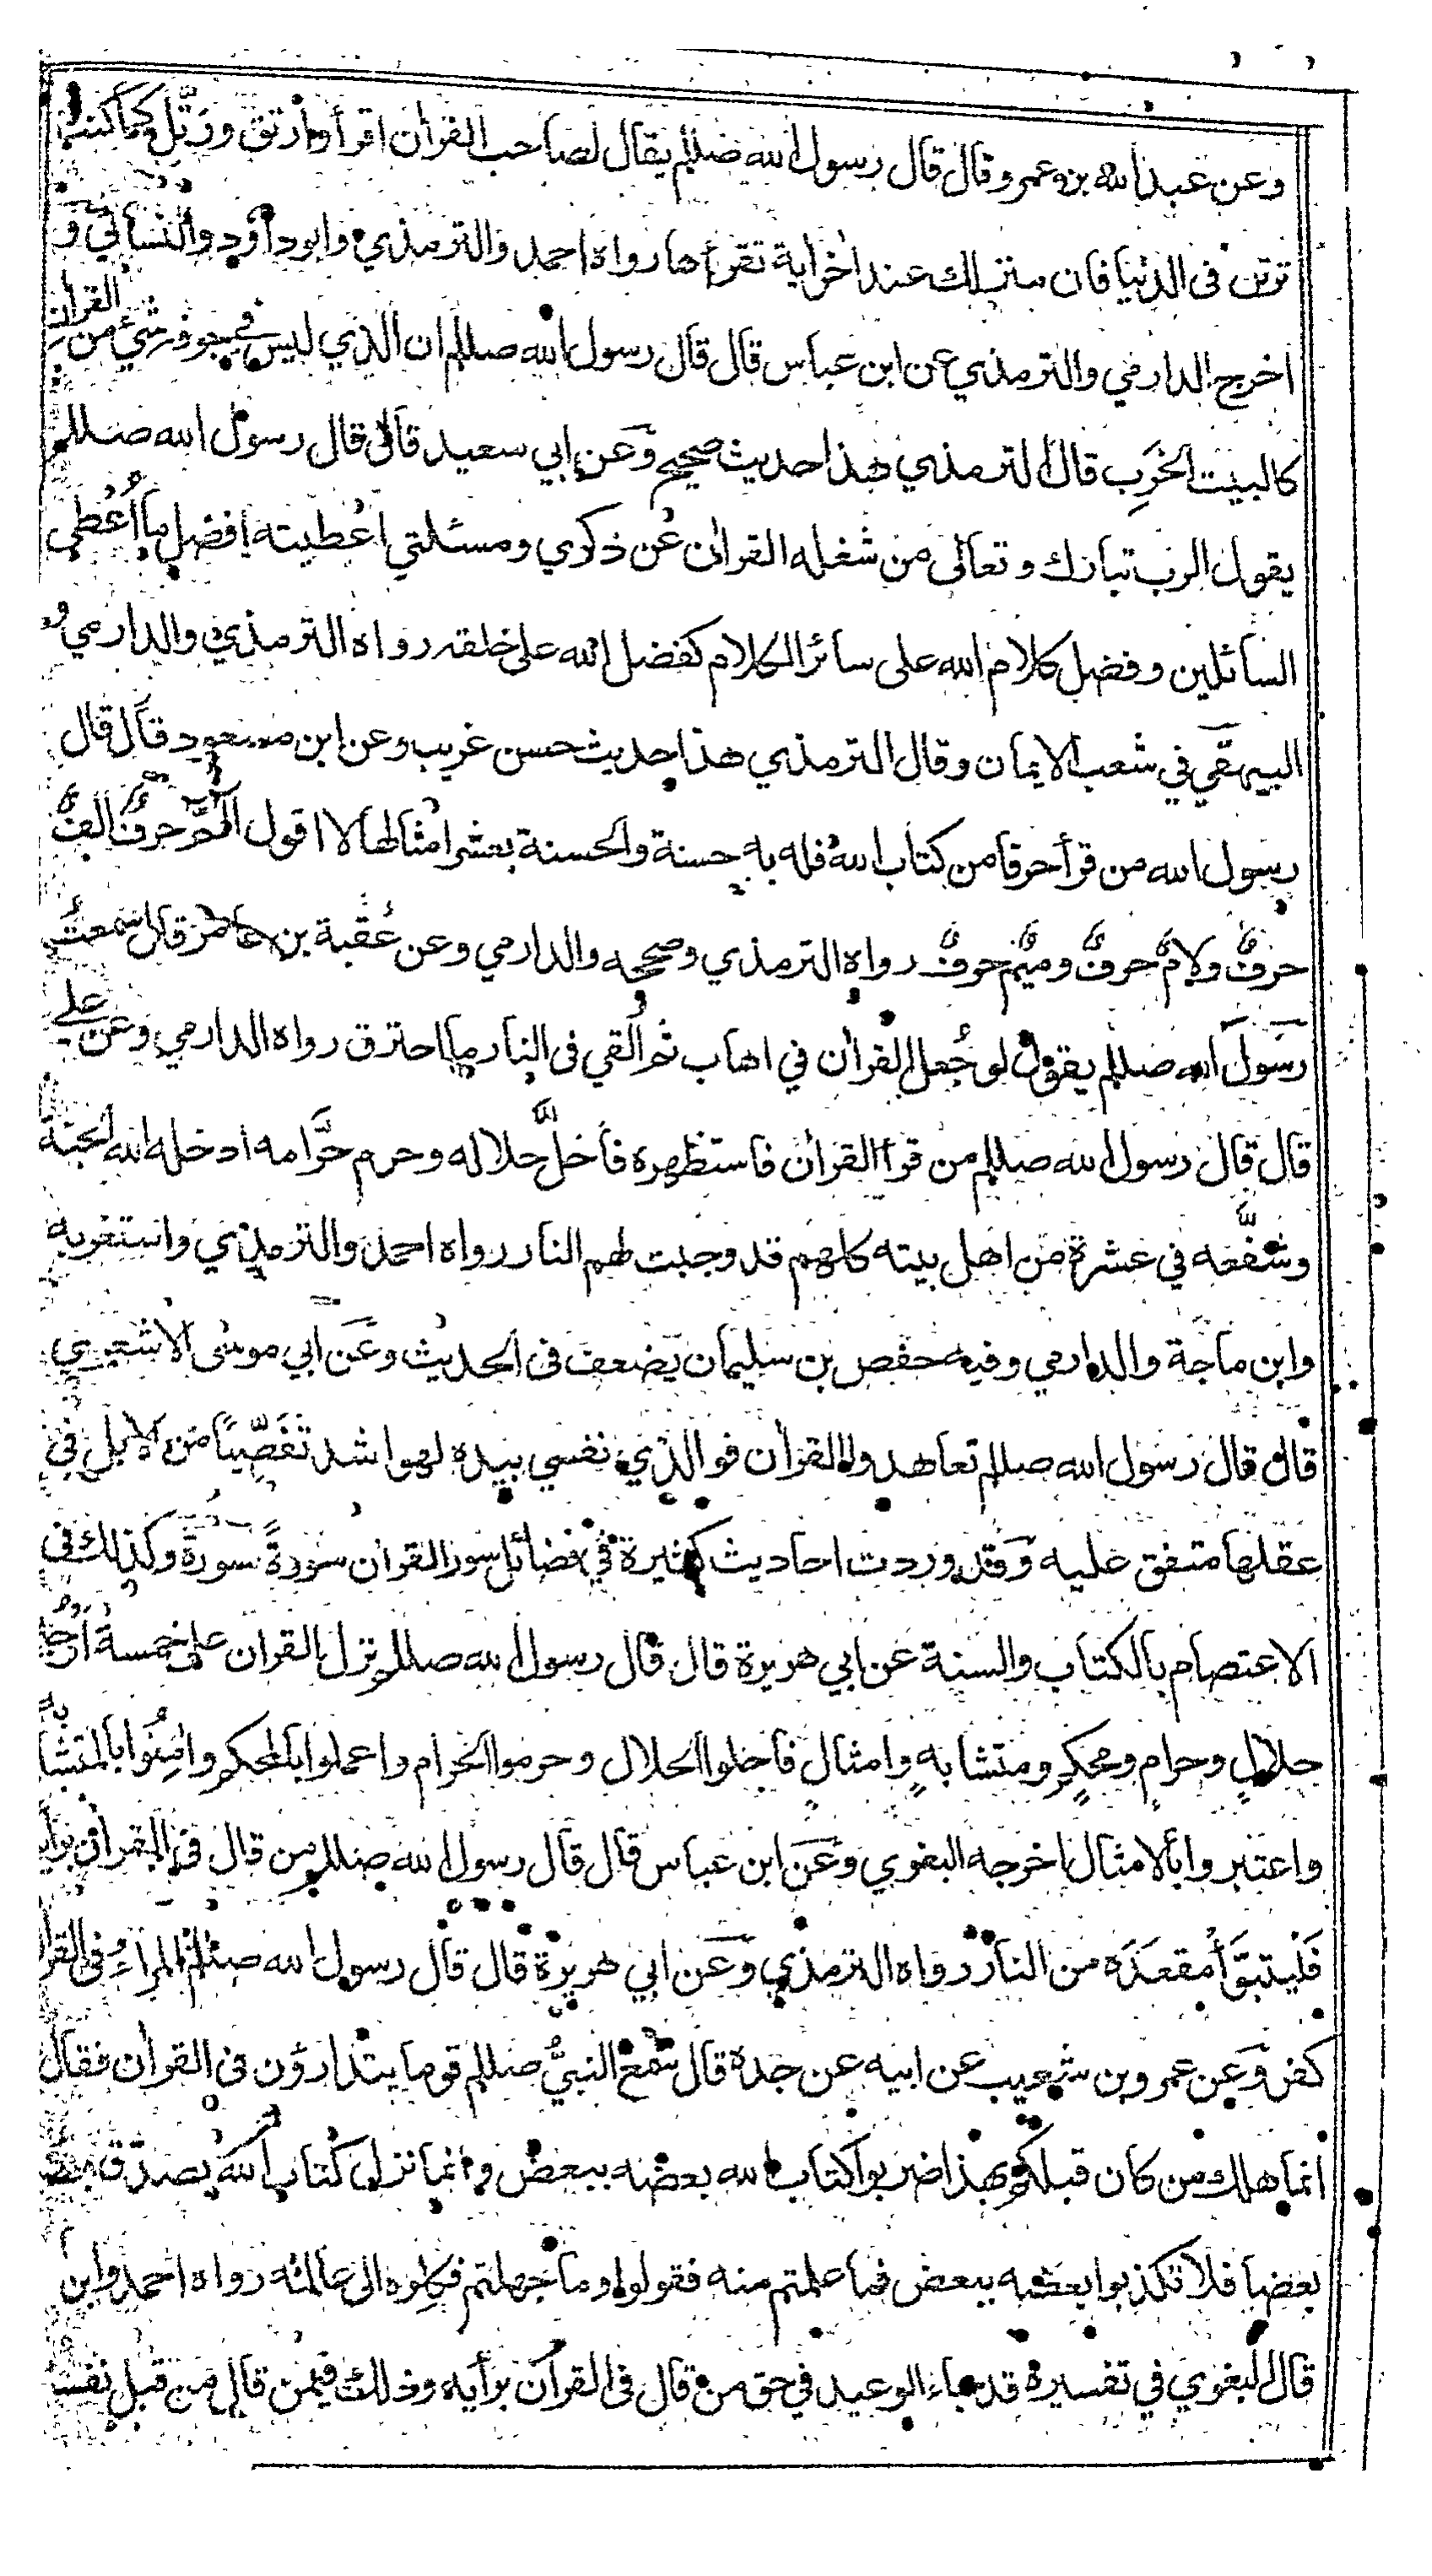 وعن عبد الله بن عمرو قال قال رسول الله صللم يقال لصاحب القرآن اقرأ وارتق ورتّل كما كنت
ترتل فى الدنيا فان منزلك عند اخر اية تقرأها رواه احمد والترمذي وابو داود والنسائي و
اخرج الدارمي والترمذي عن ابن عباس قال قال رسول الله صللم ان الذي ليس في جوفه شئ من القرآن
كالبيت الخَرِب قال الترمذي هذا حديث صحيح وعن ابي سعيد قال قال رسول الله صللم
يقول الرب تبارك وتعالى من شغله القرآن عن ذكري ومسئلتي اعطيته افضل ما اُعْطي
السائلين وفضل كلام الله على سائر الكلام كفضل الله على خلقه رواه الترمذي والدارمي و
البيهقي في شعب الايمان وقال الترمذي هذا حديث حسن غريب وعن ابن مسعود قال قال
رسول الله من قرأ حرفا من كتاب الله فله به حسنة والحسنة بعشر امثالها لا اقول الم حرفٌ الفٌ
حرفٌ ولامٌ حرفٌ وميمٌ حرفٌ رواه الترمذي وصححه والدارمي وعن عُقبة بن عامر قال سمعتُ
رسول الله صللم يقول لو جُعل القرآن في اهاب ثم اُلقي فى النار ما احترق رواه الدارمي وعن علي
قال قال رسول الله صللم من قرأ القرآن فاستظهره فأحلّ حلاله وحرم حرامه ادخله الله الجنة
وشفّعه في عشرة من اهل بيته كلهم قد وجبت لهم النار رواه احمد والترمذي واستغربه
وابن ماجة والدارمي وفيه حفص بن سليمان يضعف فى الحديث وعن ابي موسى الاشعري
قال قال رسول الله صللم تعاهدوا القرآن فوالذي نفسي بيده لهو اشد تَفَصِّياً من الابل في
عقلها متفق عليه وقد وردت احاديث كثيرة في فضائل سور القرآن سورةً سورة وكذلك فى
الاعتصام بالكتاب والسنة عن ابي هريرة قال قال رسول الله صللم نزل القرآن على خمسة اوجه
حلالٍ وحرامٍ ومحكمٍ ومتشابهٍ وامثالٍ فاحلوا الحلال وحرموا الحرام واعملوا بالمحكم وامِنُوا بالمتشابه
واعتبروا بالامثال اخرجه البغوي وعن ابن عباس قال قال رسول الله صللم من قال فى القرآن برأيه
فَلْيتبوّأ مقعَدَه من النار رواه الترمذي وعن ابي هريرة قال قال رسول الله صللم المِراءُ فى القرآن
كفر وعن عمرو بن شعيب عن ابيه عن جده قال سمع النبيُّ صللم قوما يتدارؤن فى القرآن فقال
انما هلك من كان قبلكم بهذا ضربوا كتاب الله بعضه ببعض وانما نزل كتاب الله يصدق بعضه
بعضا فلا تكذبوا بعضه ببعض فما علمتم منه فقولوا وما جهلتم فكِلوه الى عالمه رواه احمد وابن
قال البغوي في تفسيره قد جاء الوعيد في حق من قال فى القرآن برأيه وذلك فيمن قال من قبل نفسه